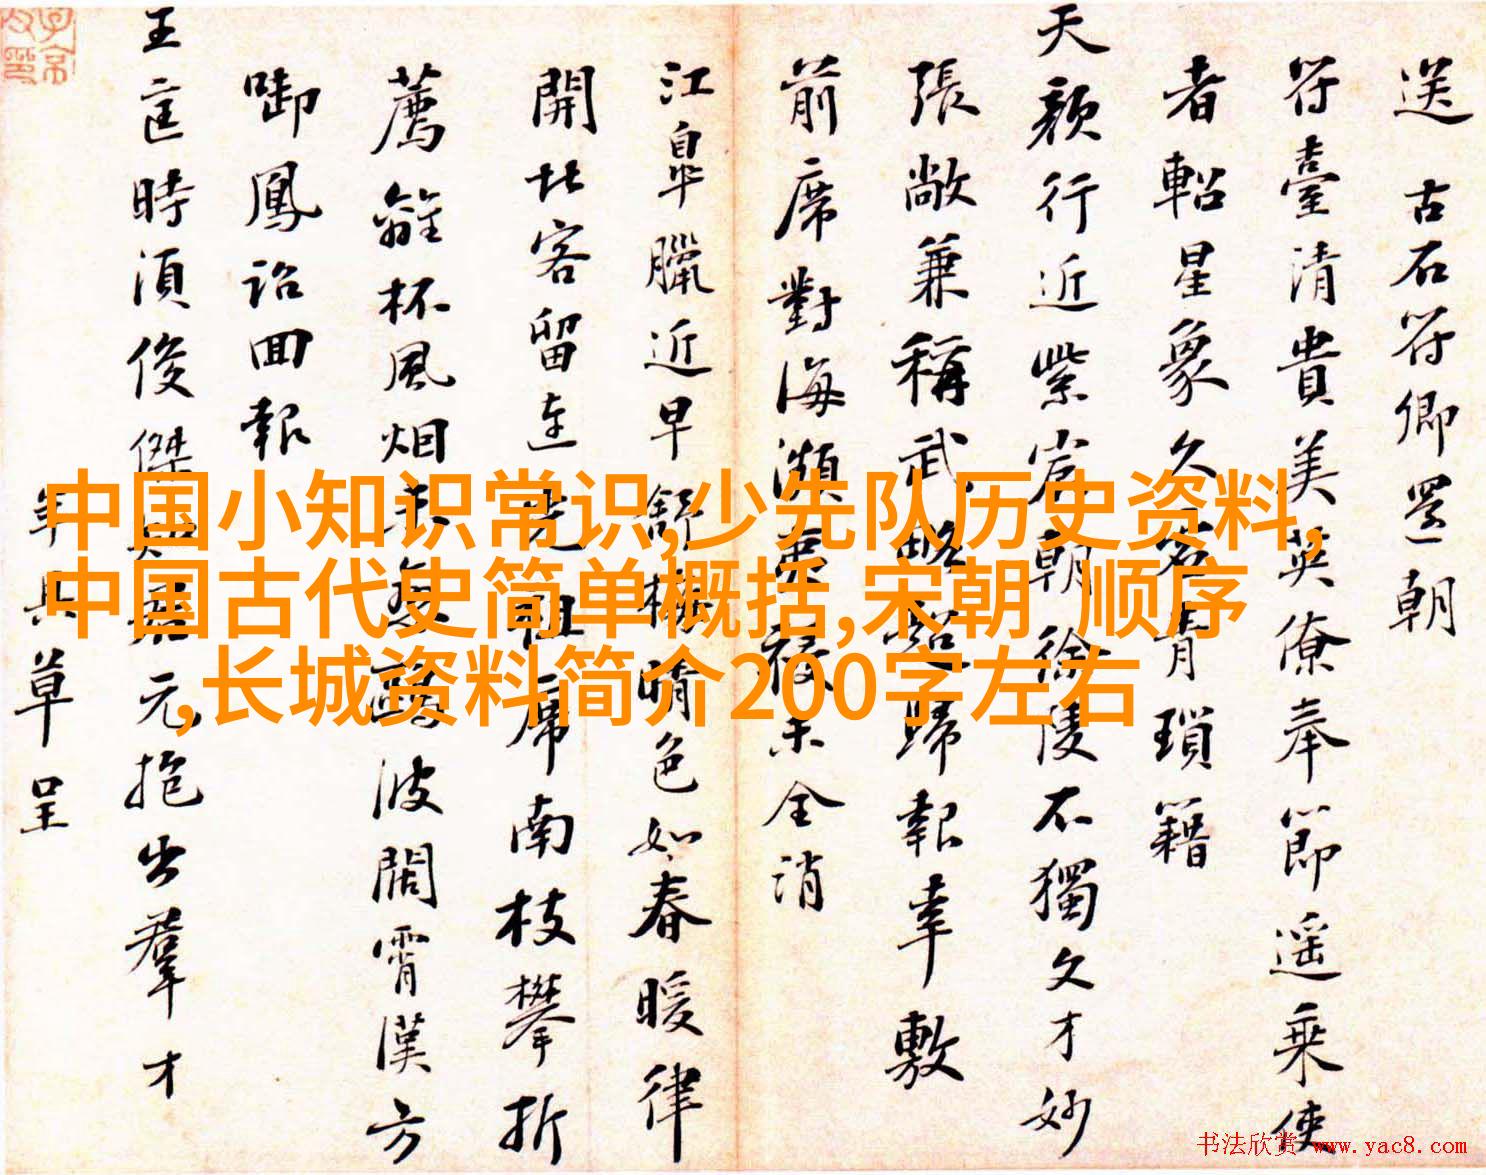 送 古石符卿還朝
符臺清貴美英僚奉節遥乘使
者軺星象久青瑣籍
天顔行近紫宸朝徐陵不獨文才妙
張敞兼稱武略超歸報幸敷
前席對海瀕未全消
江臯臘近早舒梅晴色如春暖律
開北客留連祖席南枝攀折
薦離杯風烟波闊霄漢方
啣鳳詔回報
王匡時須俊傑君元抱出羣才
年具草呈
中国小知识常识,少先队历史资料,
中国古代史简单概括,宋朝 顺序
,长城资料简介200字左右
书法欣赏 www.yac8.com